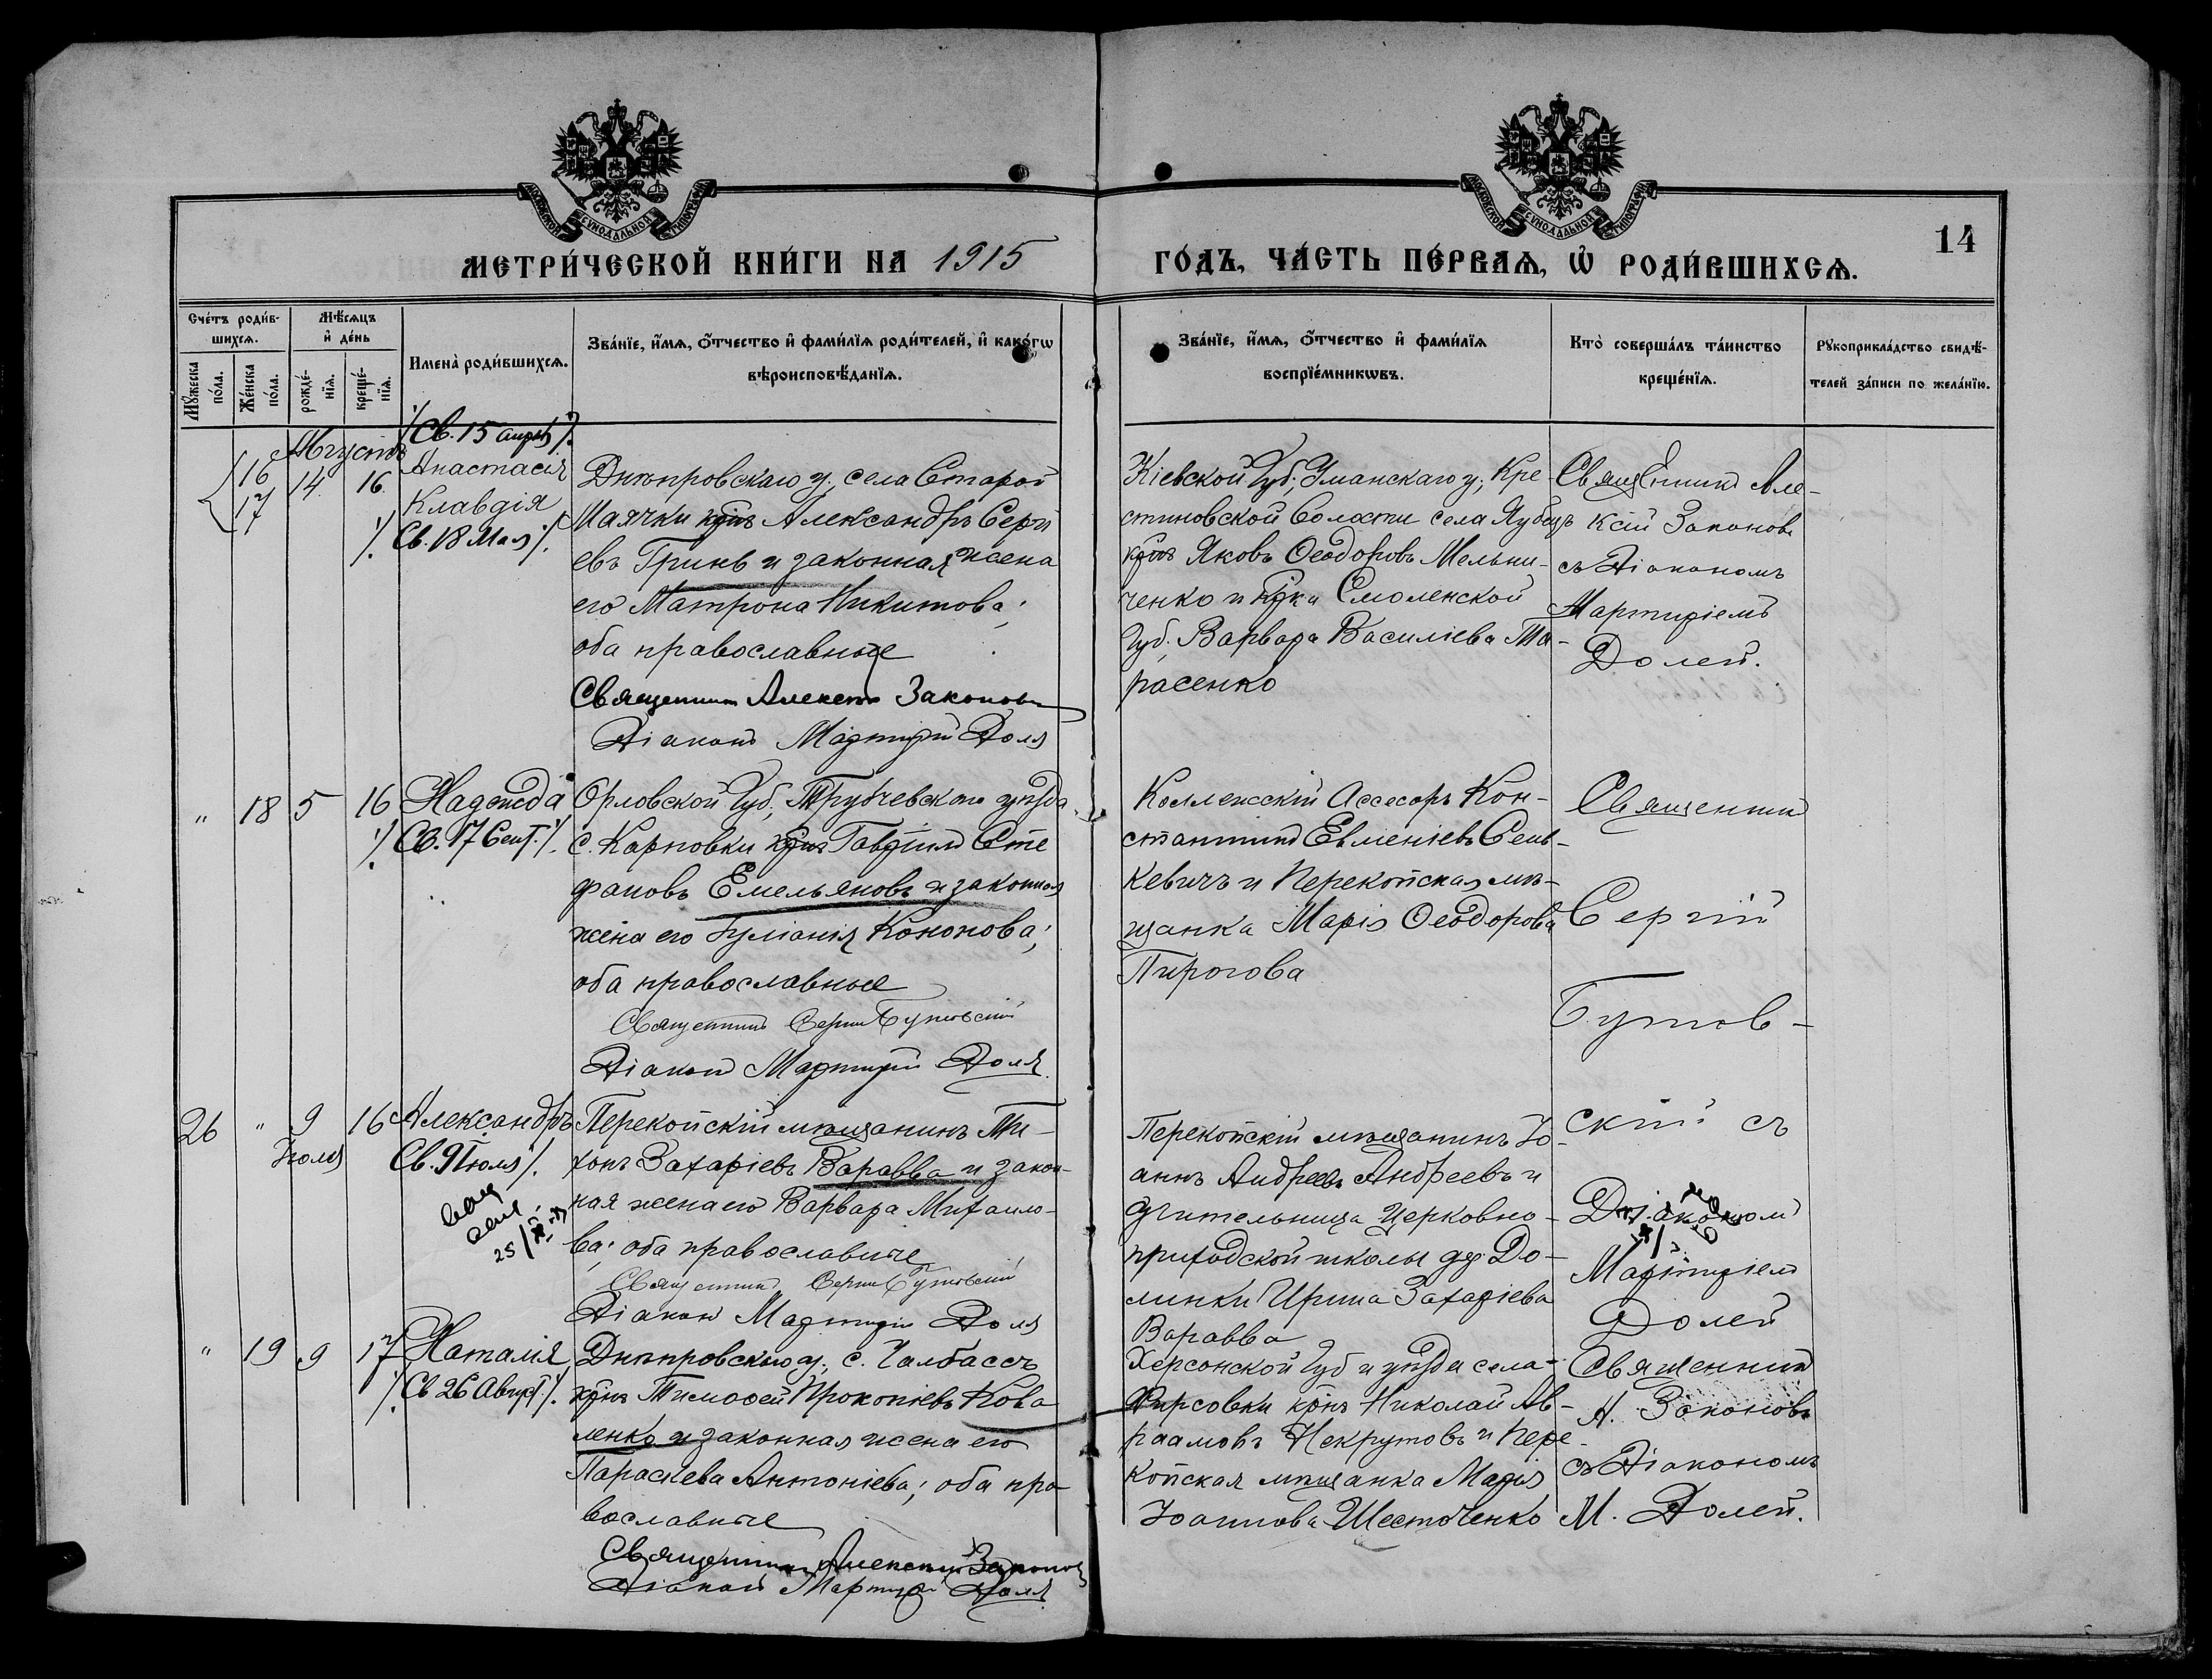 МОСКОВСКОЙ СУНОДАЛЬНОЙ ТИПОГРАФІИ
МОСКОВСКОЙ СУНОДАЛЬНОЙ ТИПОГРАФІИ
14
МЕТРИ́ЧЕСКОЙ КНИ́ГИ НА 1915
ГО́ДЪ, ЧА́СТЬ ПЕ́РВАѦ, Ѡ҆ РОДИ́ВШИХСѦ.
Сче́тъ роди́в-
шихсѧ.
Мꙋжеска
по́ла.
Же́нска
по́ла.
Мѣ́сѧцъ
и҆ де́нь
рожде́-
нїѧ.
креще́-
нїѧ.
Имена̀ роди́вшихсѧ.
Зва́нїе, и҆́мѧ, ѻ҆́тчество и҆ фами́лїѧ роди́телей, и҆ како́гѡ
вѣроисповѣ́данїѧ.
Зва́нїе, и҆́мѧ, ѻ҆́тчество и҆ фами́лїѧ
воспрїе́мникѡвъ.
Кто̀ соверша́лъ та́инство
креще́нїѧ.
Рꙋкоприкла́дство свидѣ́-
телей за́писи по жела́нїю.
Августъ
16
17
14
16
Св. 15 апрѣл
Анастасія
Клавдія
Св. 18 Мая
Днѣпровскаго у., села Старой
Маячки крнъ Александръ Сергі
евъ Гринь и законная жена
его Матрона Никитова;
оба православные
Священникъ Алексій Законовъ
Діаконъ Мартирій Доля
Кіевской Губ., Уманскаго у., Кре-
стиновской Волости села Яубецъ
крнъ Яковъ Ѳеодоровъ Мельни-
ченко и крка Смоленской
Губ. Варвара Василіева Та-
расенко
Священникъ Але-
ксій Законовъ
съ Діакономъ
Мартиріемъ
Долей.
" 18 5 16
Надежда
Св. 17 Сент.
Орловской Губ., Трубчевскаго уѣзда
с. Карповки крнъ Гавріилъ Сте
фановъ Емельяновъ и законная
жена его Іуліанія Кононова;
оба православные
Священникъ Сергій Бутовскій
Діаконъ Мартирій Доля
Коллежскій Ассесоръ Кон-
стантинъ Евменіевъ Сень-
кевичъ и Перекопская мѣ-
щанка Марія Ѳеодорова
Пирогова
Священникъ
Сергій
Бутов-
скій съ
Діакономъ
Мартиріемъ
Долей
26 " 9 16
Іюля
Александръ
Св. 9 Іюля
25/
Перекопскій мѣщанинъ Ти-
хонъ Захаріевъ Варавва и закон-
ная жена его Варвара Михаило-
ва; оба православные
Священникъ Сергій Бутовскій
Діаконъ Мартирій Доля
Перекопскій мѣщанинъ Іо-
аннъ Андреевъ Андреевъ и
учительница Церковно-
приходской школы дер. До-
линки Ирина Захаріева
Варавва
" 19 9 17
Наталія
Св 26 Август.
Днѣпровскаго у., с. Чалбассъ
крнъ Тимоѳей Прокопіевъ Кова
ленко и законная жена его
Параскева Антоніева; оба пра
вославные
Священникъ Алексій Законовъ
Діаконъ Мартирій Доля
Херсонской Губ и уѣзда села
Фирсовки крнъ Николай Ав-
раамовъ Некрутовъ и Пере-
копская мѣщанка Марія
Іоаннова Шесточенко
Священникъ
А. Законовъ
съ Діакономъ
М. Долей.